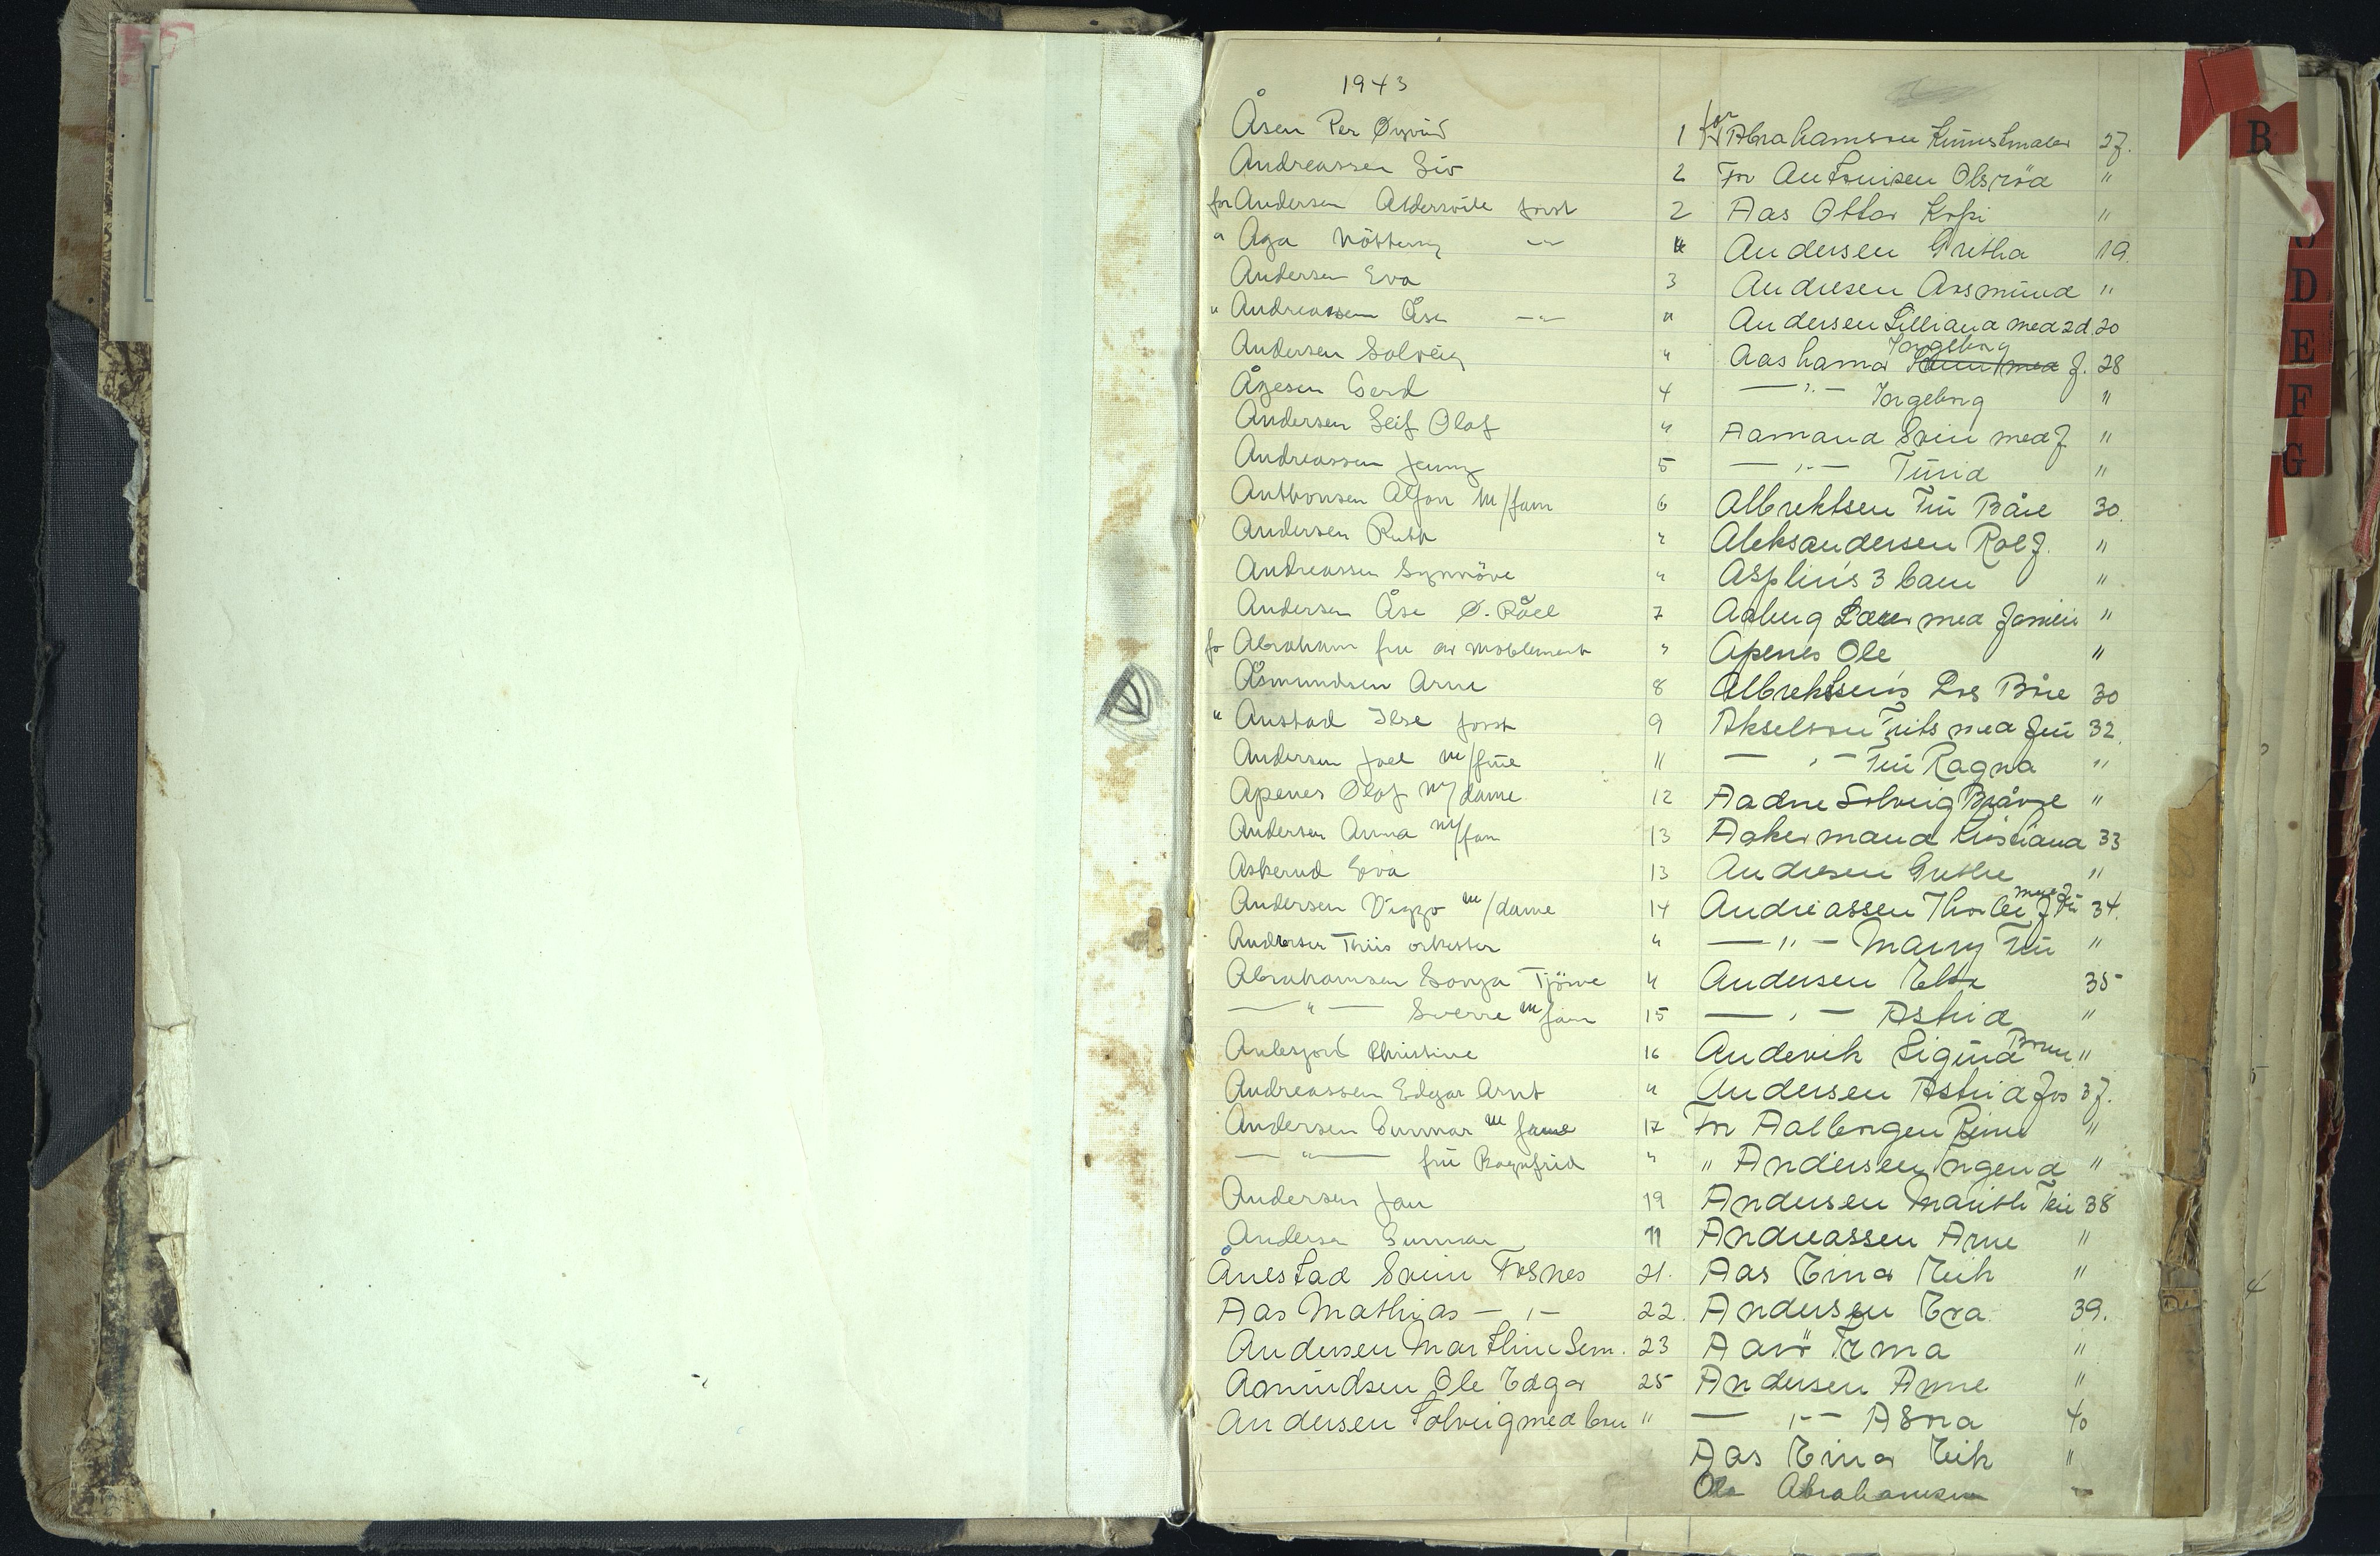 1943
Åsen Per Øyvind 1
Andreassen Siv 2
for Andersen Aldersvile forst 2
" Aga Nötterøy —"— "
Andersen Eva 3
" Andreassen Åse —"— "
Andersen Solveig "
Ågesen Gerd 4
Andersen Leif Olaf "
Andreassen Jenny 5
Anthonsen Alfon m/fam 6
Andersen Ruth "
Andreassen Synnöve "
Andersen Åse Ø. Råel 7
for Abraham fru av moblement "
Åsmundsen Arne 8
" Anstad Else forst 9
Andersen Joel m/frue 11
Apenes Olaf m/dame 12
Andersen Anna m/fam 13
Askerud Eva 13
Andersen Viggo m/dame 14
Andersen Thiis orkester "
Abrahamsen Sonja Tjöme "
—"— Sverre m/fam 15
Christine 16
Andreassen Edgar Arnt "
Andersen Gunnar m 17
—"— frü Ragnfrid "
Andersen Jan 19
Andersen Gunnar 11
Ånestad Svein Fosnes 21.
Aas Mathias —"— 22.
Andersen Marthine Sem. 23
Amündsen Ole Edgar 25
Andersen Solveig med barn "
for Abrahamson Künstmaler 27.
For Antonisen Olsröd "
Aas Ottar Kopi "
Andersen Gretha 19.
Andresen Aasmünd "
Andersen Lilliana med 2d. 20
Aashamar Ingeborg f. 28
—"— Ingeborg "
Aamand Svein med f "
—"— Türid "
Albrektsen Frü Båre 30.
Aleksandersen Rolf. "
Asplin's 3 barn "
Aaberg Lærer med familie "
Apenes Ole "
Albrektsen's Båre 30
Akselson Frits med frü 32.
—"— Frü Ragna "
Aadne Solveig "
Askermand Kristiana 33
Andresen Grethe "
Andreassen Thorleif med frü 34.
—"— Marry Frü "
Andersen Else 35
—"— Astrid "
Andevik Sigürd Brevik "
Andersen Astrid for 37.
For Aalborgen "
" Andersen Ingerid "
Andersen Marithe Frü 38
Andreassen Arne "
Aas Einar Eik "
Andersen Eva 39.
Aarö Irma "
Andersen Anne "
—"— Asora 40
Aas Einar Eik "
Ole Abrahamsen "
B
D
E
F
G